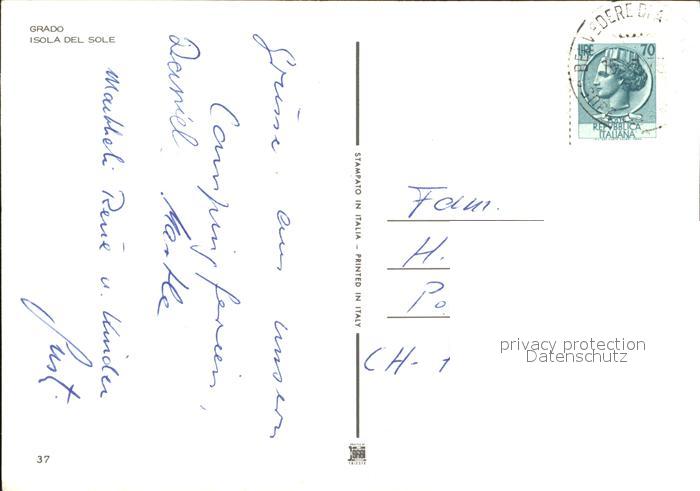 GRADO
ISOLA DEL SOLE
Grüsse aus unseren
Campingferien,
Daniel. Marthe
René u. Kinder
STAMPATO IN ITALIA – PRINTED IN ITALY
TRIESTE
37
LIRE 70
REPVBBLICA
ITALIANA
Fam.
H.
Po
CH-1
privacy protection
Datenschutz